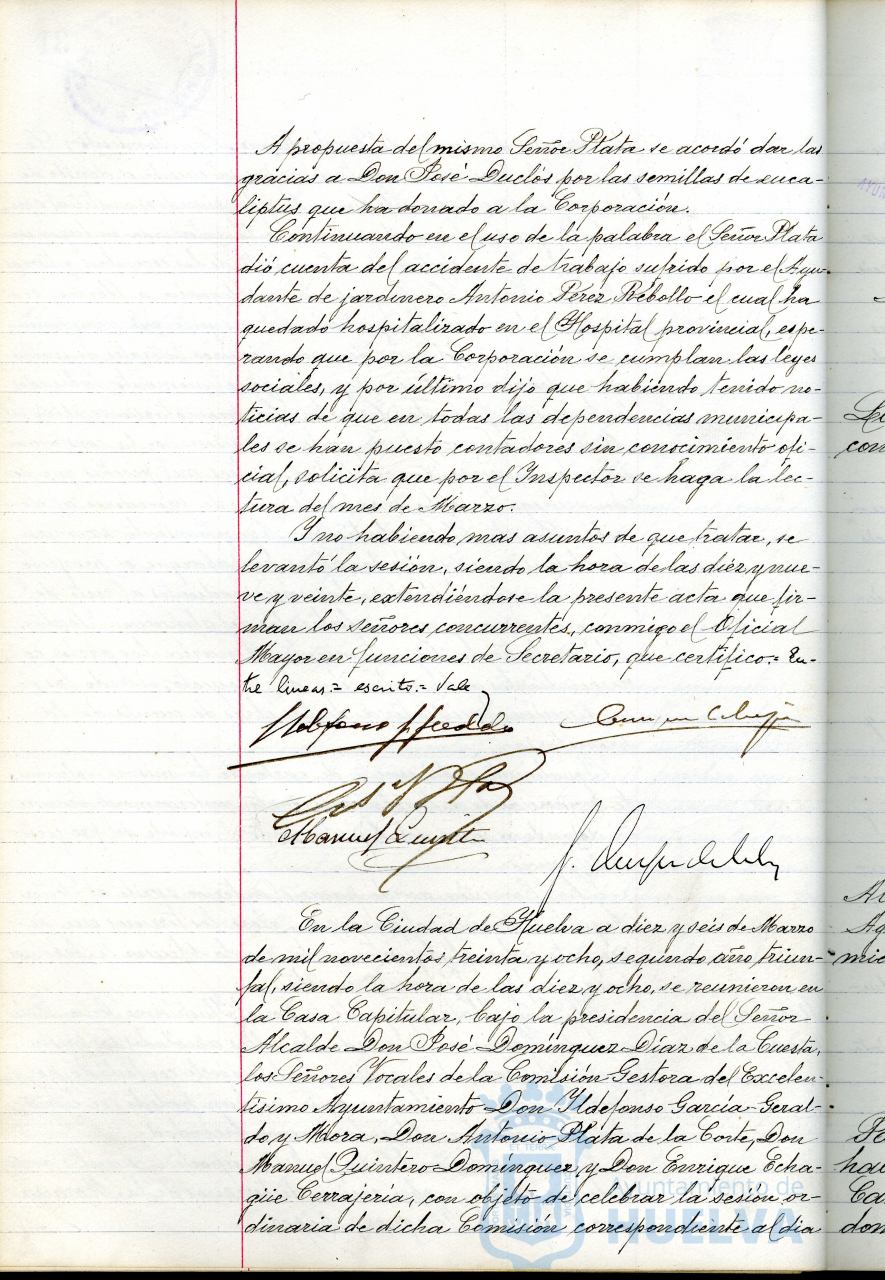 A propuesta del mismo Señor Plata se acordó dar las
gracias a Don José Duclós por las semillas de euca-
liptus que ha donado a la Corporación.
Continuando en el uso de la palabra el Señor Plata
dió cuenta del accidente de trabajo sufrido por el Ayu-
dante de jardinero Antonio Pérez Rebollo el cual ha
quedado hospitalizado en el Hospital provincial, espe-
rando que por la Corporación se cumplan las leyes
sociales, y por último dijo que habiendo tenido no-
ticias de que en todas las dependencias municipa-
les se han puesto contadores sin conocimiento ofi-
cial, solicita que por el Inspector se haga la lec-
tura del mes de Marzo.
Y no habiendo mas asuntos de que tratar, se
levantó la sesión, siendo la hora de las diéz y nue-
ve y veinte, extendiéndose la presente acta que fir-
man los señores concurrentes, conmigo el Oficial
Mayor en funciones de Secretario, que certifico.= En-
tre lineas.= escrito.= Vale
Manuel Quintero
En la Ciudad de Huelva a diez y seis de Marzo
de mil novecientos treinta y ocho, segundo año triun-
fal, siendo la hora de las diez y ocho, se reunieron en
la Casa Capitular, bajo la presidencia del Señor
Alcalde Don José Domínguez Díaz de la Cuesta,
los Señores Vocales de la Comisión Gestora del Excelen-
tísimo Ayuntamiento Don Ildefonso García-Geral-
do y Mora, Don Antonio Plata de la Corte, Don
Manuel Quintero Domínguez y Don Enrique Echa-
güe Cerrajería, con objeto de celebrar la sesión or-
dinaria de dicha Comisión correspondiente al dia
Ayuntamiento de
HUELVA